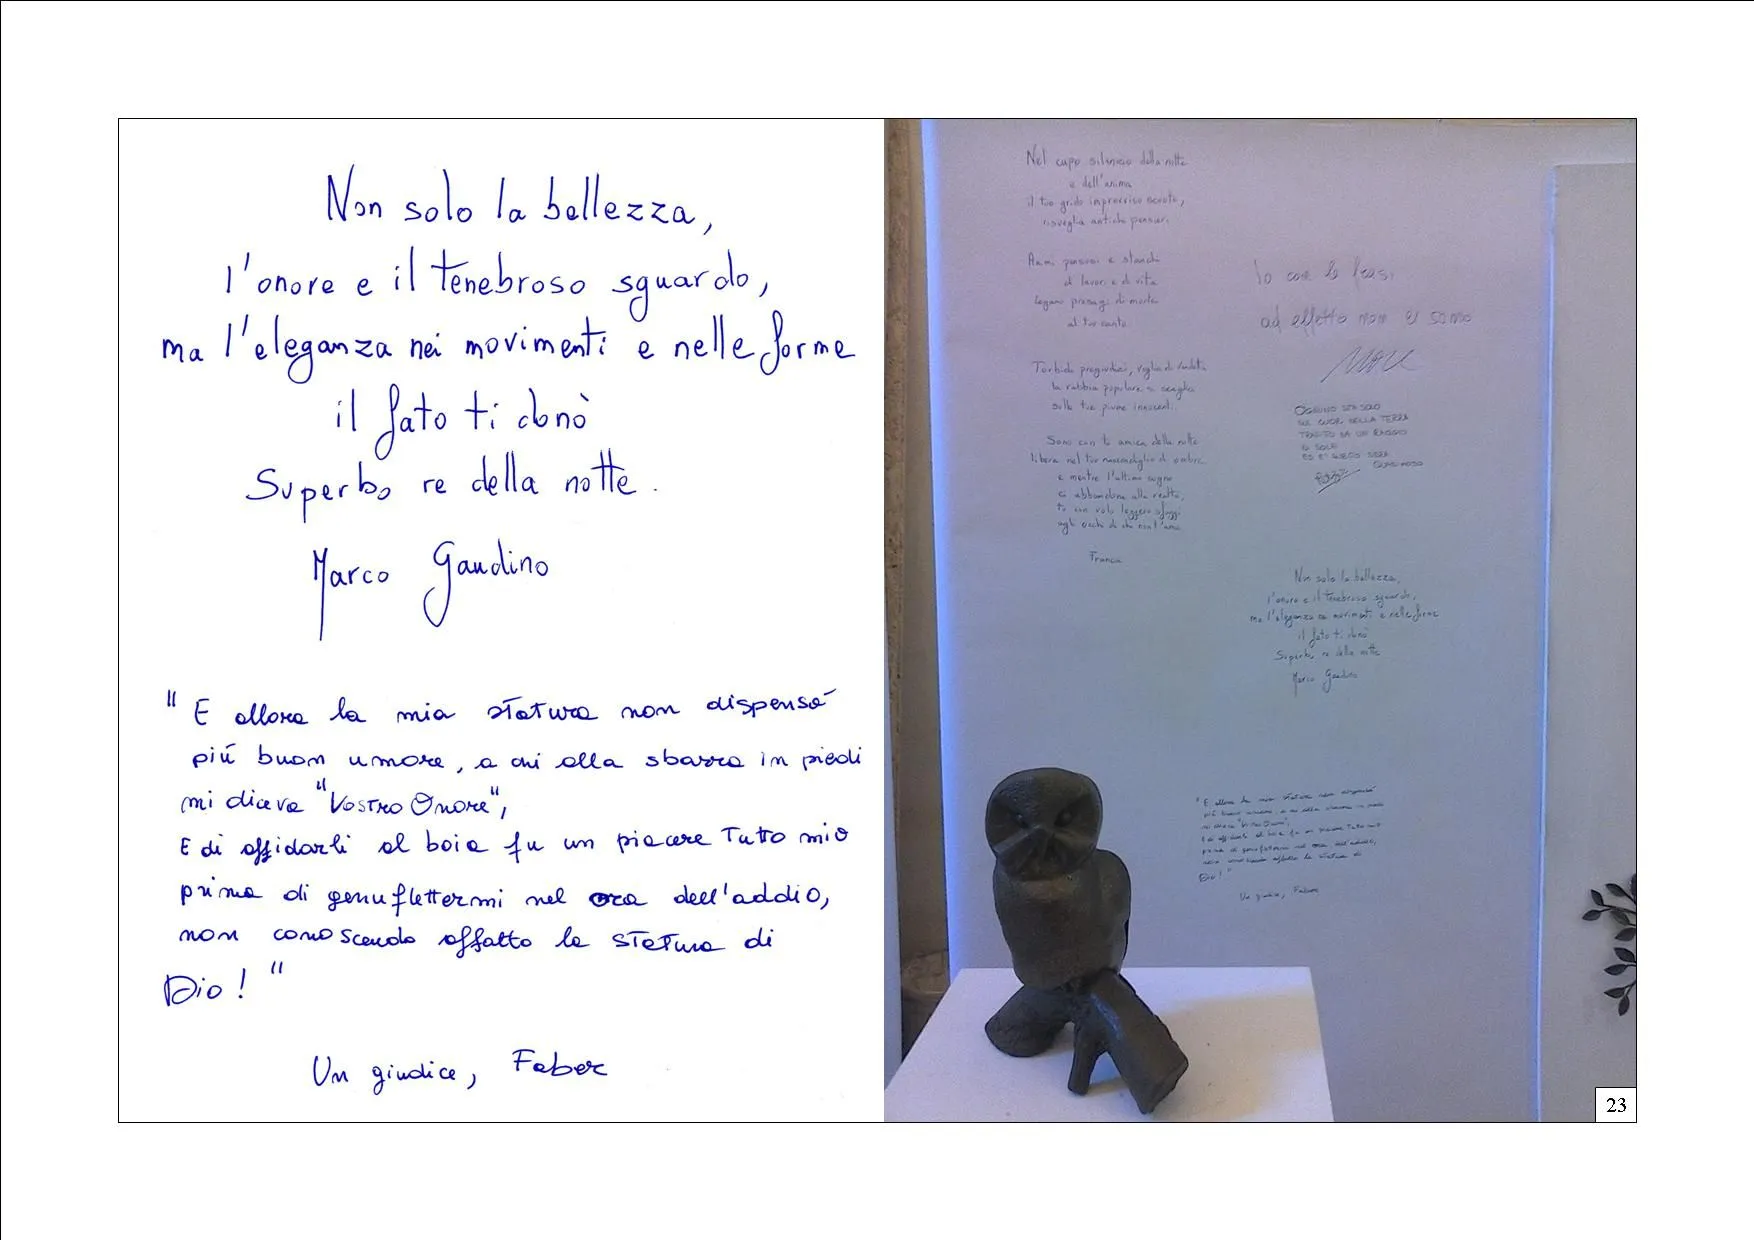 Non solo la bellezza,
l'onore e il tenebroso sguardo,
ma l'eleganza nei movimenti e nelle forme
il fato ti donò
Superbo re della notte.
Marco Gaudino
"E allora la mia statura non dispensò
più buon umore, a chi alla sbarra in piedi
mi diceva "Vostro Onore",
E di affidarli al boia fu un piacere tutto mio
prima di genuflettermi nel ora dell'addio,
non conoscendo affatto la statura di
Dio!"
Un giudice, Faber
Nel cupo silenzio della notte
e dell'anima
il tuo grido improvviso
risveglia antichi pensieri.
Animi pensosi e stanchi
di lavori e di vita
legano presagi di morte
al tuo canto
Torbidi pregiudizi, voglia di vendetta
la rabbia popolare si scaglia
sulle tue piume innocenti.
Sono con te amica della notte
libera nel tuo nascondiglio di ombre
e mentre l'ultimo sogno
ci abbandona alla realtà,
tu con volo leggero sfuggi
agli occhi di chi non t'ama.
Franca
Io con le frasi
ad effetto non ci sono
OGNUNO STA SOLO
SUL CUOR DELLA TERRA
TRAFITTO DA UN RAGGIO
DI SOLE
ED E' SUBITO SERA
QUASIMODO
Non solo la bellezza,
l'onore e il tenebroso sguardo,
ma l'eleganza nei movimenti e nelle forme
il fato ti donò
Superbo re della notte
Marco Gaudino
"E allora la mia statura non dispensò
più buon umore, a chi alla sbarra in piedi
mi diceva "Vostro Onore",
E di affidarli al boia fu un piacere tutto mio
prima di genuflettermi nel ora dell'addio,
non conoscendo affatto la statura di
Dio!"
Un giudice, Faber
23